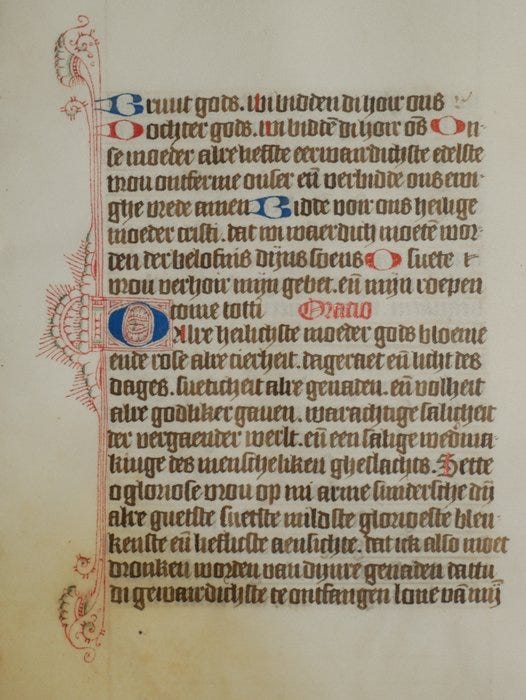 Bruut gods. wi bidden di hoir ons
Dochter gods. wi biddē di hoir ōs On-
se moeder alre liefste eerwaerdichste edelste
vrou ontferme onser eñ verbidde ons ewi-
ghe vrede amen Bidde voir ons heilige
moeder cristi. dat wi waerdich moetē wor-
den der belofnis dijns soens O suete
vrou verhoir mijn gebet. eñ mijn roepen
come totti Oracio
O Alre heilichste moeder gods bloeme
ende rose alre cierheit. dageraet eñ licht des
dages. sueticheit alre genaden. eñ volheit
alre godliker gauen. warachtige salicheit
der vergaender werlt. eñ een salige
des menscheliken gheslachts. Sette
o gloriose vrou op mi arme sundersche dij
alre guetste suetste mildste glorioeste blen-
kenste eñ lieflicste aensichte. dat ick also moet
dronken worden van dijnre genaden dattu
di gewaerdichste te ontfangen loue vā mij